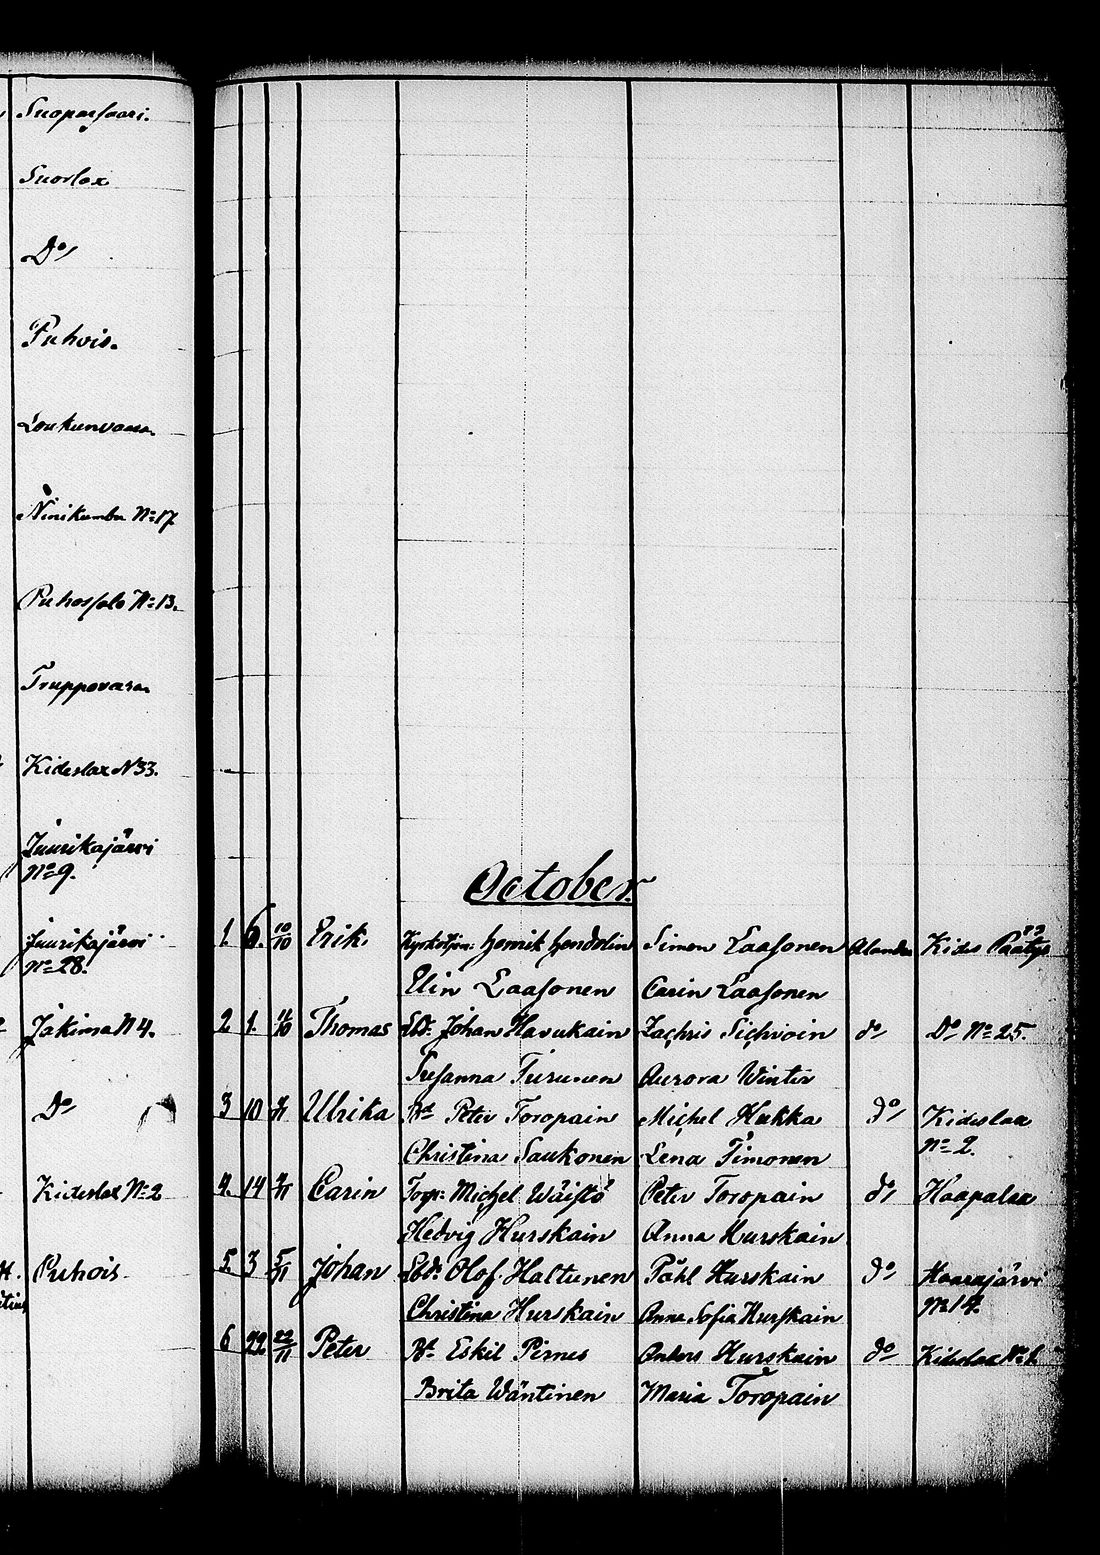 Suoparsaari.
Suorlax
Do
Puhois.
Loukunvaara.
Ninikumbu No 17
Puhossalo No 13.
Truppovara.
Kideslax N 33.
Juurikajärvi
No 9.
Juurikajärvi
No 28.
Jakima N 4.
Do
Kideslax No 2
Puhois.
October.
1. 6. 10/10 Erik. Henrik Hendolin Simon Laasonen Kides
Elin Laasonen Carin Laasonen
2 1. 11/10 Thomas Johan Havukain Zachris Sichvoin do Do No 25.
Susanna Turunen Aurora Winter
3 10 Ulrika Bd Peter Toropain Michel Hukka do Kideslax
No 2.
Christina Saukonen Lena Timonen
4. 14 Carin Torp: Michel Wäistö Peter Toropain do Haapalax
Hedvig Hurskain Anna Hurskain
5. 3 5/11 Johan Lbd: Olof Haltunen Påhl Hurskain do Haarajärvi
No 14.
Christina Hurskain Anna Sofia Hurskain
6 22 22/11 Peter Bd Eskil Pirnes Anders Hurskain do Kideslax No 1.
Brita Wäntinen Maria Toropain